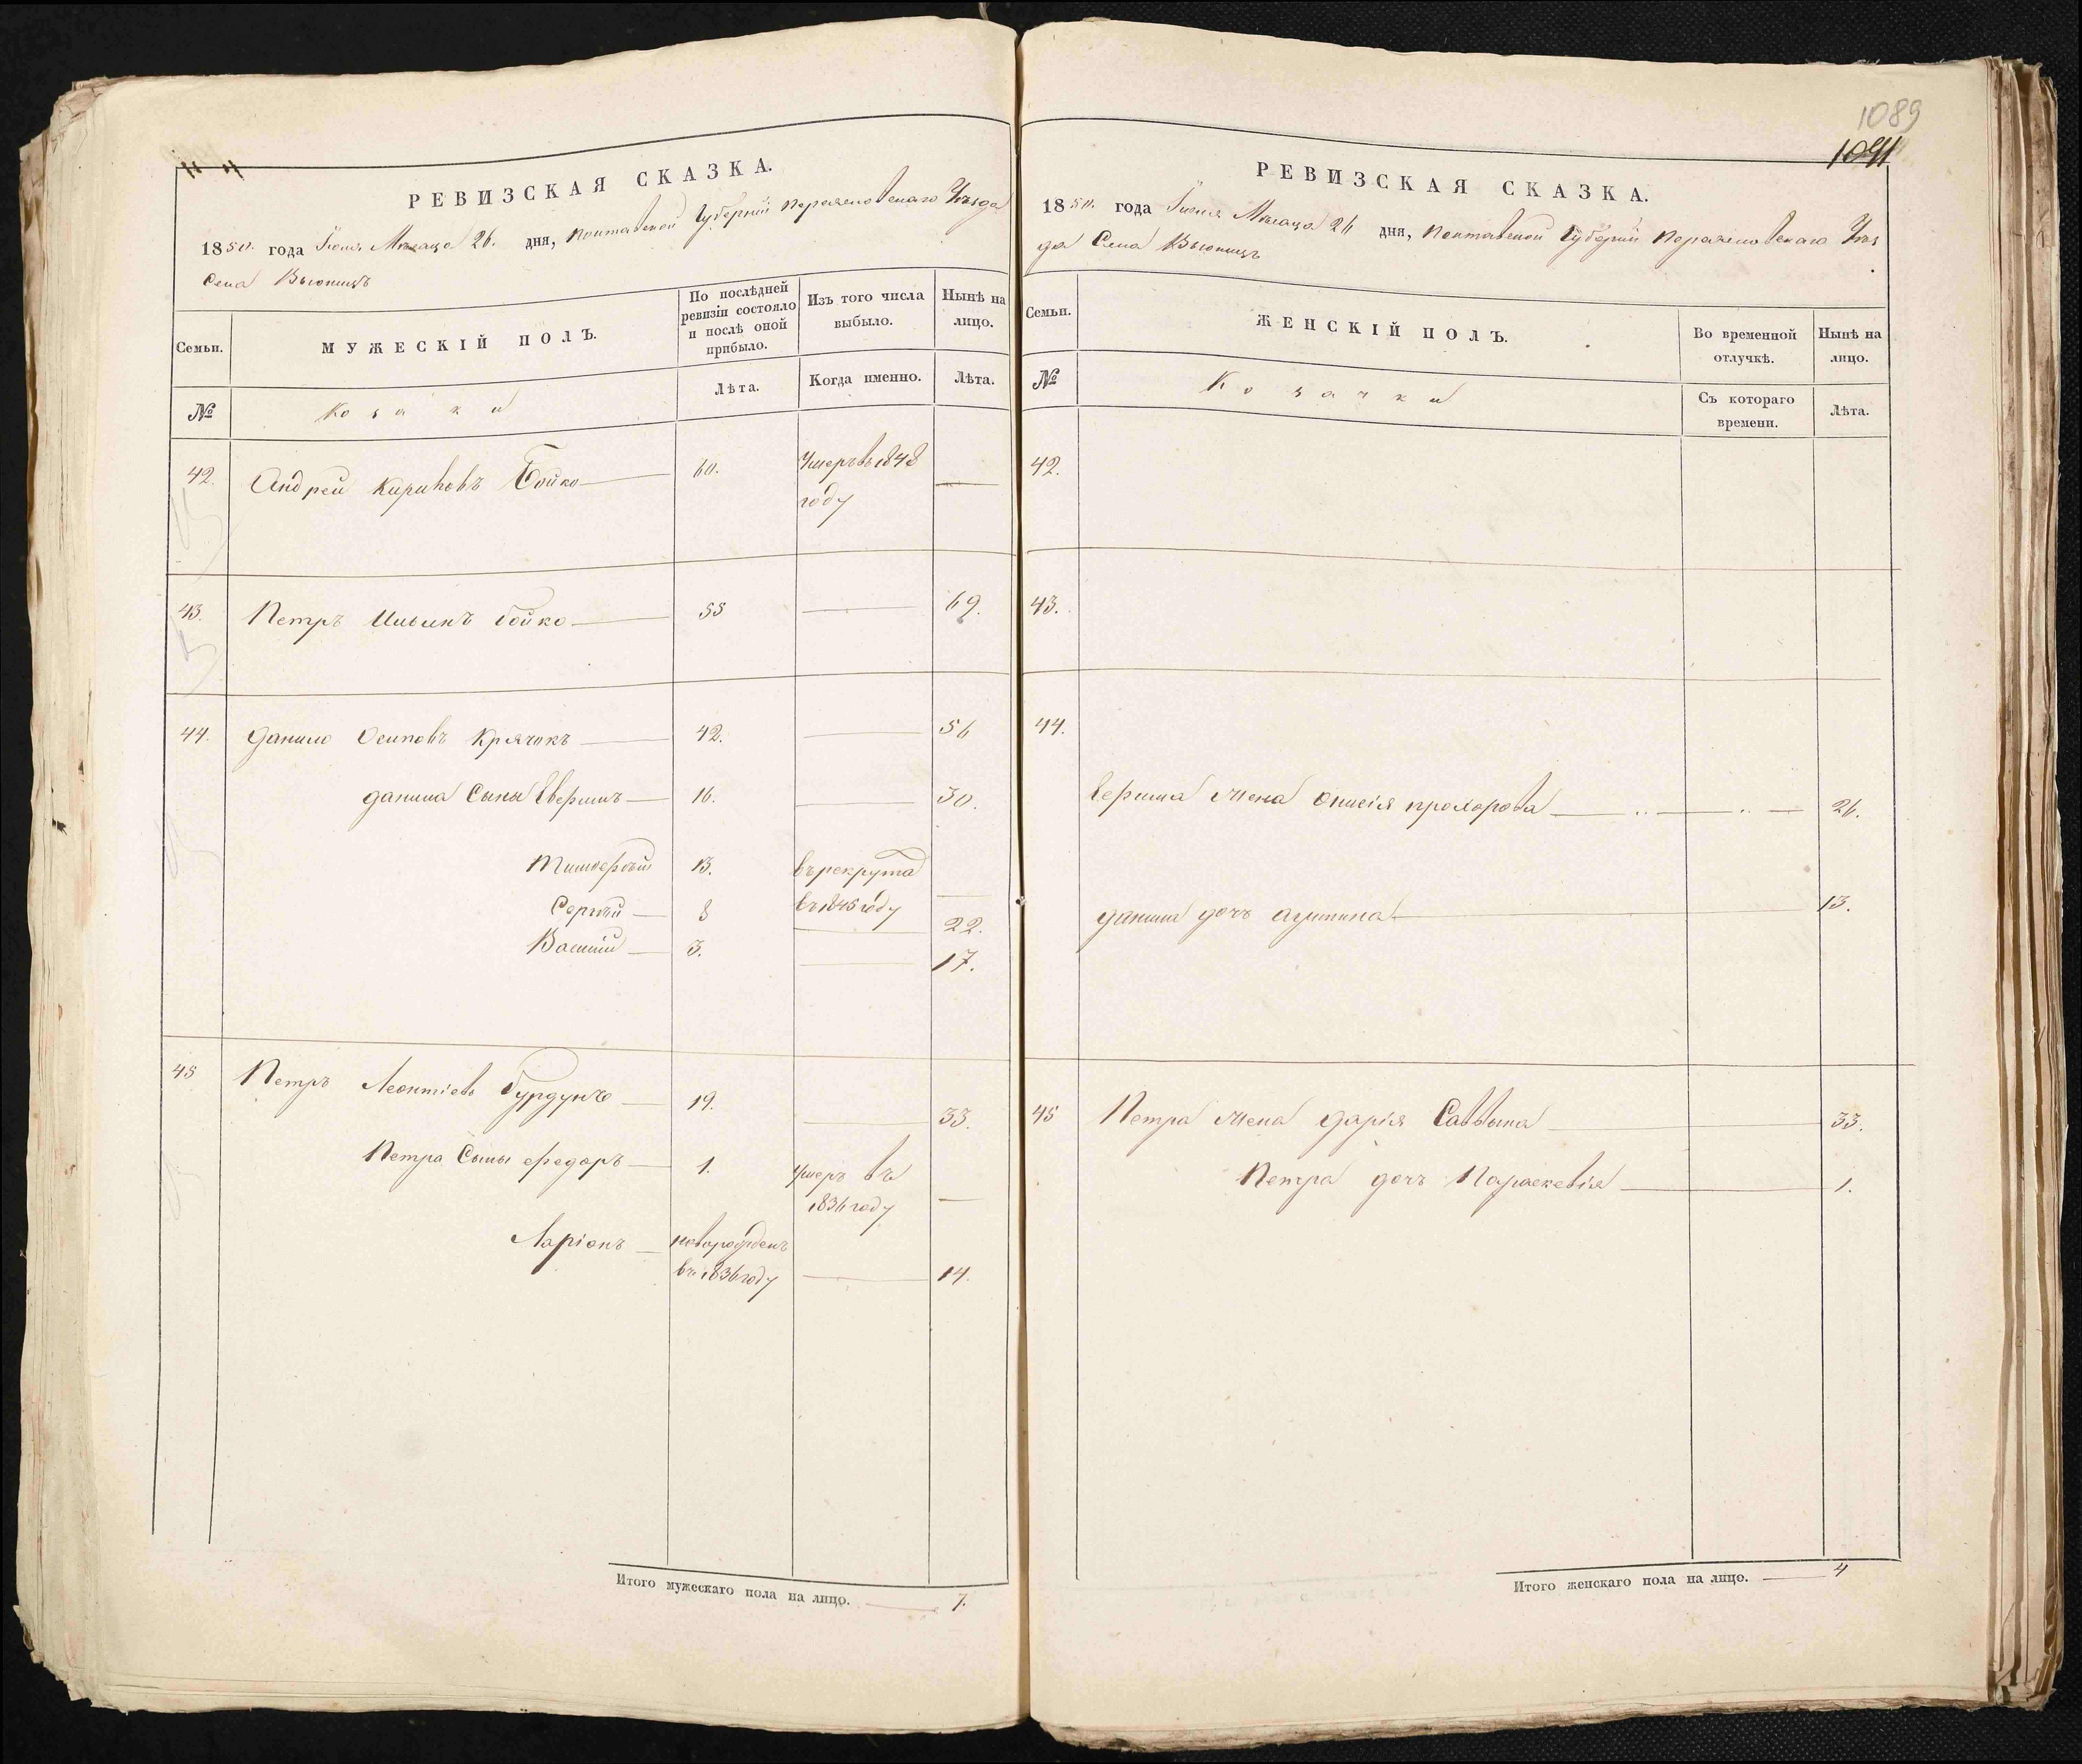 РЕВИЗСКАЯ СКАЗКА.
1850. года Іюня Мѣсяца 26. дня, Полтавской Губерніи Переяславскаго Уѣзда
Села Вьюнищъ
Семьи.
МУЖЕСКІЙ ПОЛЪ.
По послѣдней ревизіи состояло и послѣ оной прибыло.
Изъ того числа выбыло.
Нынѣ на лицо.
№
Козаки
Лѣта.
Когда именно.
Лѣта.
42. Андрей Бойко 60. Умеръ въ 1848
году
43. Петръ Ильинъ Бойко 55 69.
44. Данило Осиповъ Крячокъ 42. 56
Данила Сыны 16. 30.
13. въ рекрута
Сергѣй 8 въ 1845 году 22.
Василій 3. 17.
45 Петръ Леонтіевъ Бурдунъ 19. 33.
Петра Сыны Федоръ 1. Умеръ въ
1836 году
Ларіонъ новорожденъ
въ 1836 году 14.
Итого мужескаго пола на лицо. 7.
1089
1091
РЕВИЗСКАЯ СКАЗКА.
1850. года Іюня Мѣсяца 26 дня, Полтавской Губерніи Переяславскаго Уѣз
да Села Вьюнищъ
Семьи.
ЖЕНСКІЙ ПОЛЪ.
Во временной отлучкѣ.
Нынѣ на лицо.
№
Козачки
Съ котораго времени.
Лѣта.
42.
43.
44.
жена Онисія Прохорова 26.
Данила дочь 13.
45 Петра жена Дарія Саввына 33.
Петра дочь Параскевія 1.
Итого женскаго пола на лицо. 4